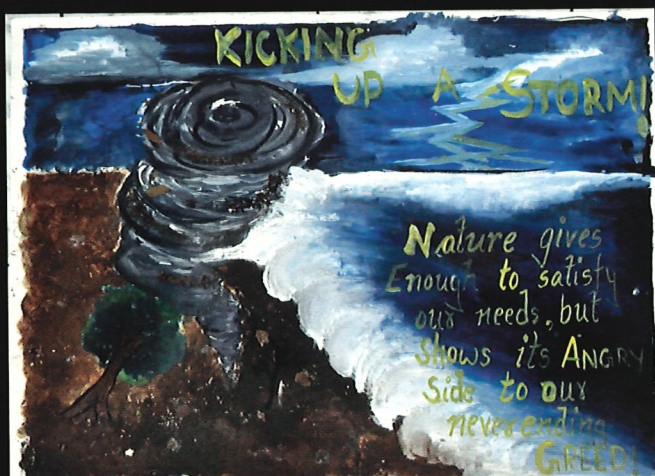 KICKING
UP A STORM!
Nature gives
Enough to satisfy
our needs, but
Shows its ANGRY
Side to our
neverending
GREED!